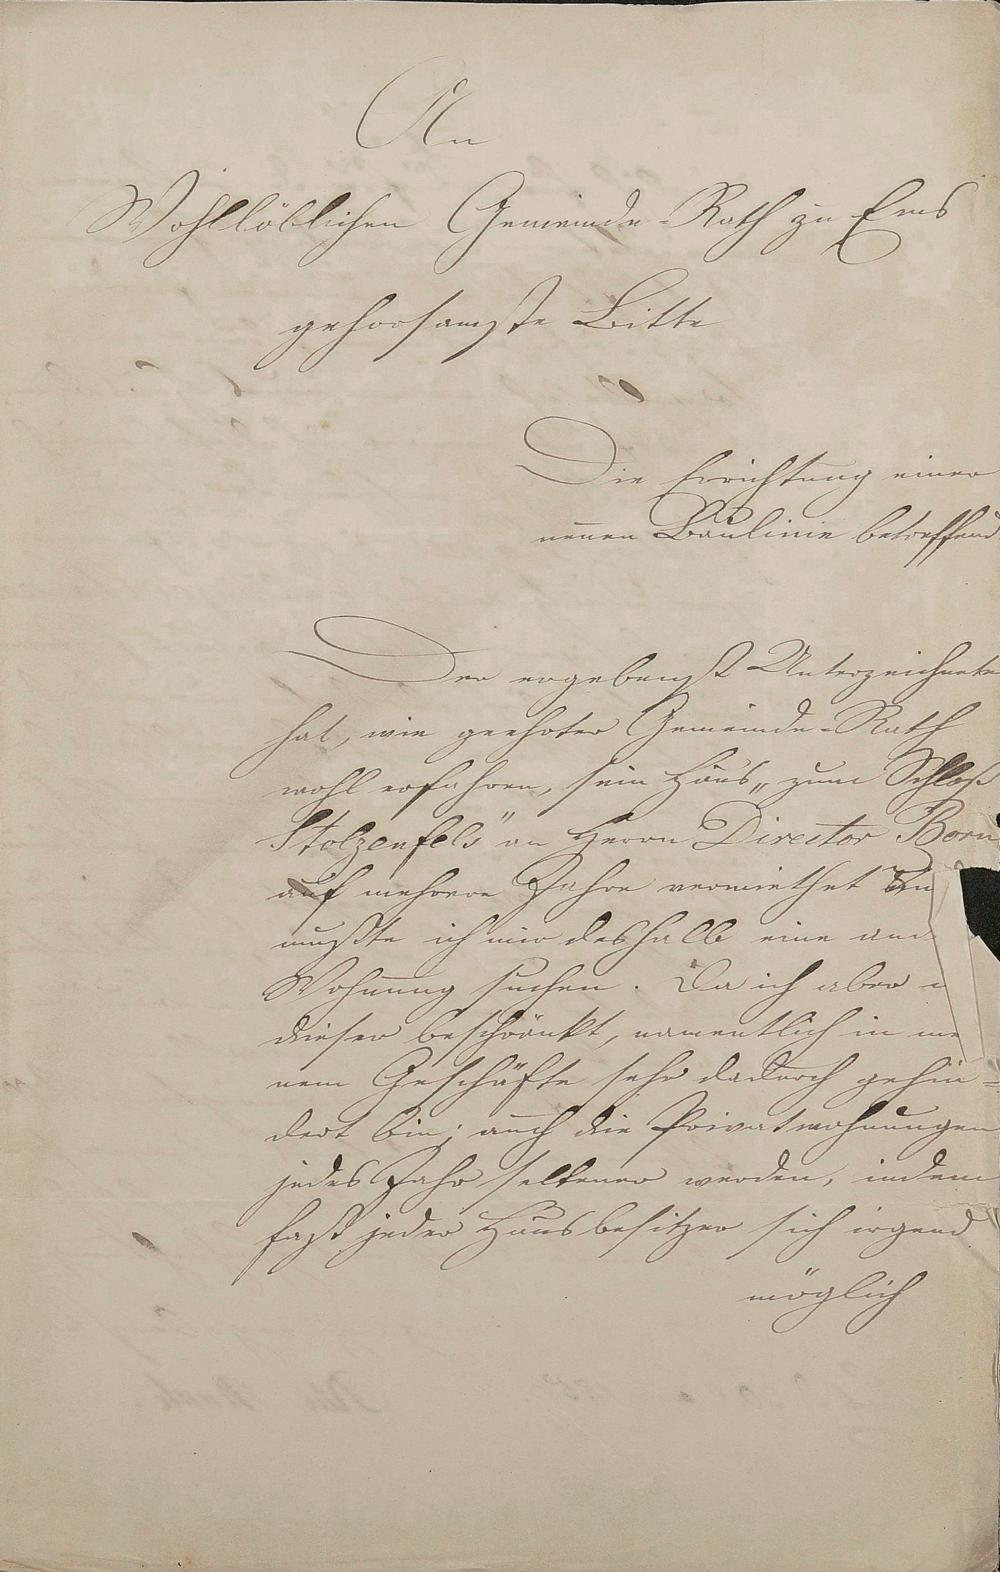 An
Wohllöblichen Gemeinde-Rath zu Ems
gehorsamste Bitte
Die Errichtung einer
neuen Baulinie betreffend
Der ergebenst Unterzeichnete
hat, wie geehrter Gemeinde-Rath
wohl erfahren, sein Haus „zum Schloß
Stolzenfels" an Herrn Director Born
auf mehrere Jahre vermiethet
mußte ich mir deshalb eine and
Wohnung suchen. Da ich aber
dieser beschränkt, namentlich in me
nem Geschäfte sehr dadurch gehin=
dert bin; auch die Privatwohnungen
jedes Jahr seltener werden, indem
fast jeder Hausbesitzer sich irgend
möglich